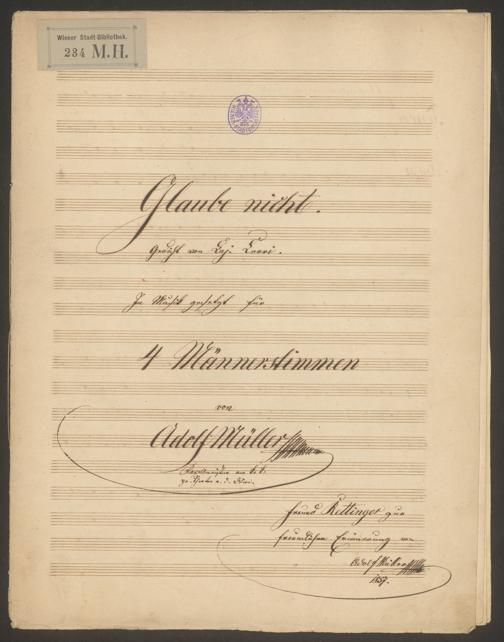 Wiener Stadt-Bibliothek.
234 M.H.
Glaube nicht.
Gedicht von
In Musik gesetzt für
4 Männerstimmen
von
Adolf Müller
Kapellmeister am k. k.
pr. Theater a. d. Wien.
Freund Kettinger zur
freundlichen Erinnerung von
Adolf Müller